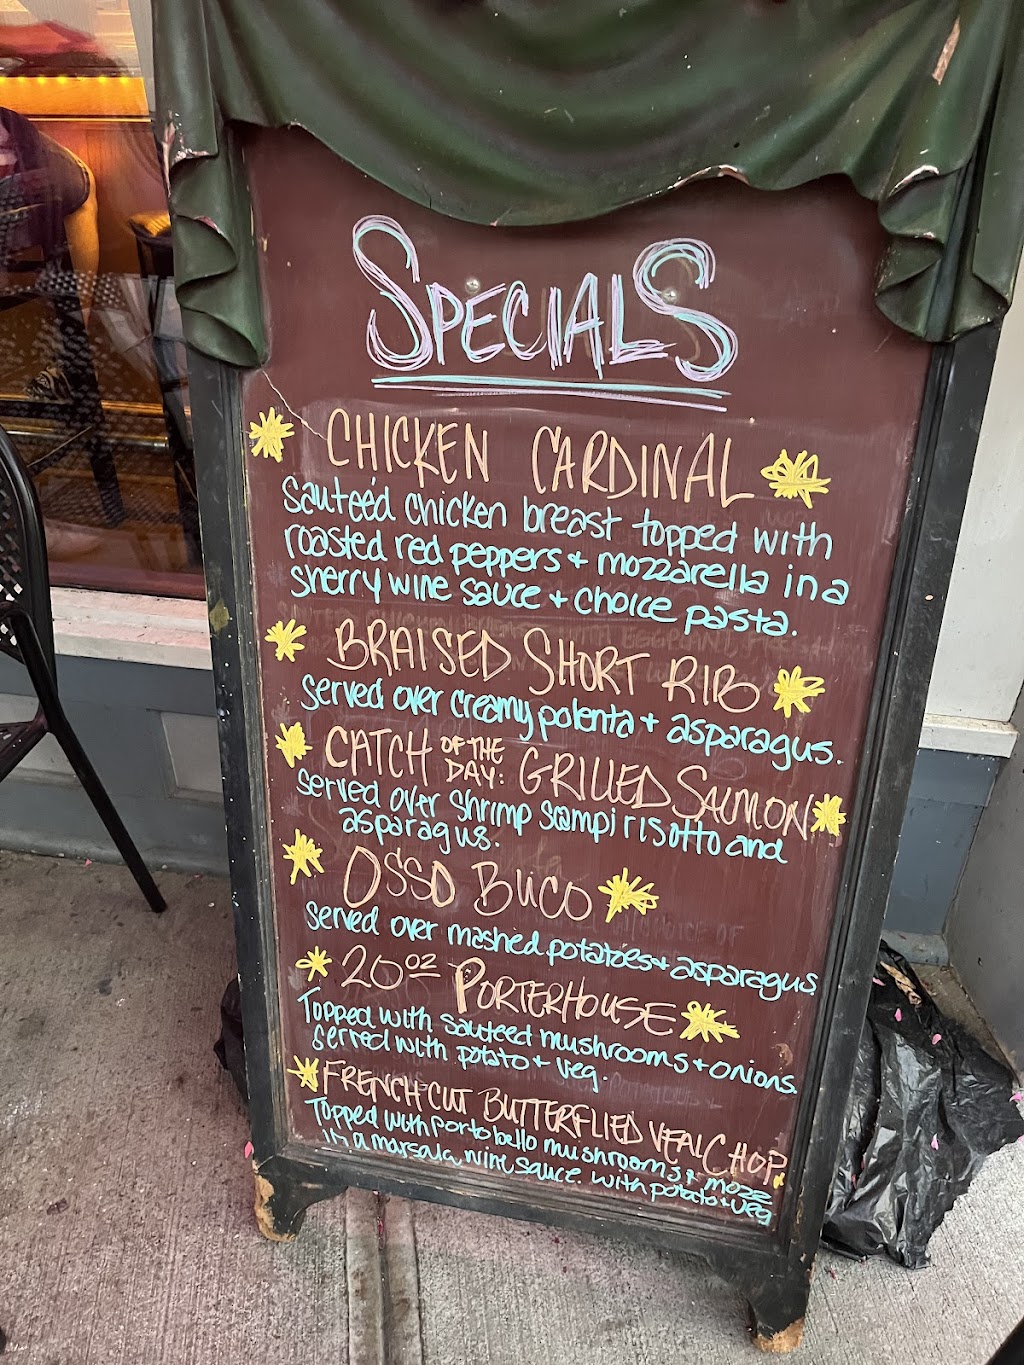 SPECIALS
CHICKEN CARDINAL
Sauteéd chicken breast topped with
roasted red peppers + mozzarella in a
sherry wine sauce + choice pasta.
BRAISED SHORT RIB
served over creamy polenta + asparagus.
CATCH OF THE DAY: GRILLED SALMON
served over shrimp scampi risotto and
asparagus.
OSSO BUCO
served over mashed potatoes + asparagus
20 OZ PORTERHOUSE
Topped with sauteed mushrooms + onions.
served with potato + veg.
FRENCH CUT BUTTERFLIED VEAL CHOP
Topped with portobello mushrooms + mozz
in a marsala wine sauce. with potato + veg